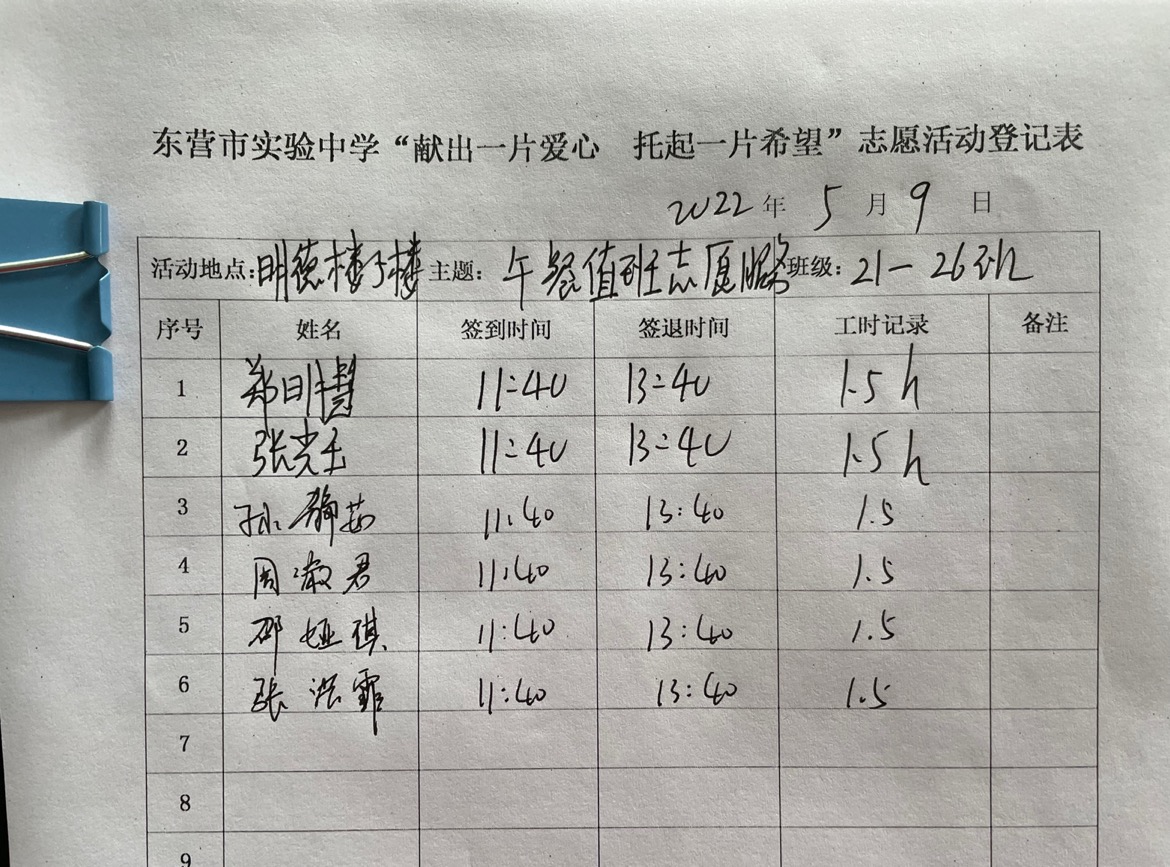 东营市实验中学“献出一片爱心 托起一片希望”志愿活动登记表
2022 年 5 月 9 日
活动地点:明德楼3楼 主题: 午餐值班志愿服务 班级: 21-26 Zh
序号 姓名 签到时间 签退时间 工时记录 备注
1 郑明慧 11:40 13:40 1.5 h
2 张光玉 11:40 13:40 1.5 h
3 孙静茹 11:40 13:40 1.5
4 周淑君 11:40 13:40 1.5
5 邵娅琪 11:40 13:40 1.5
6 张洪霏 11:40 13:40 1.5
7
8
9